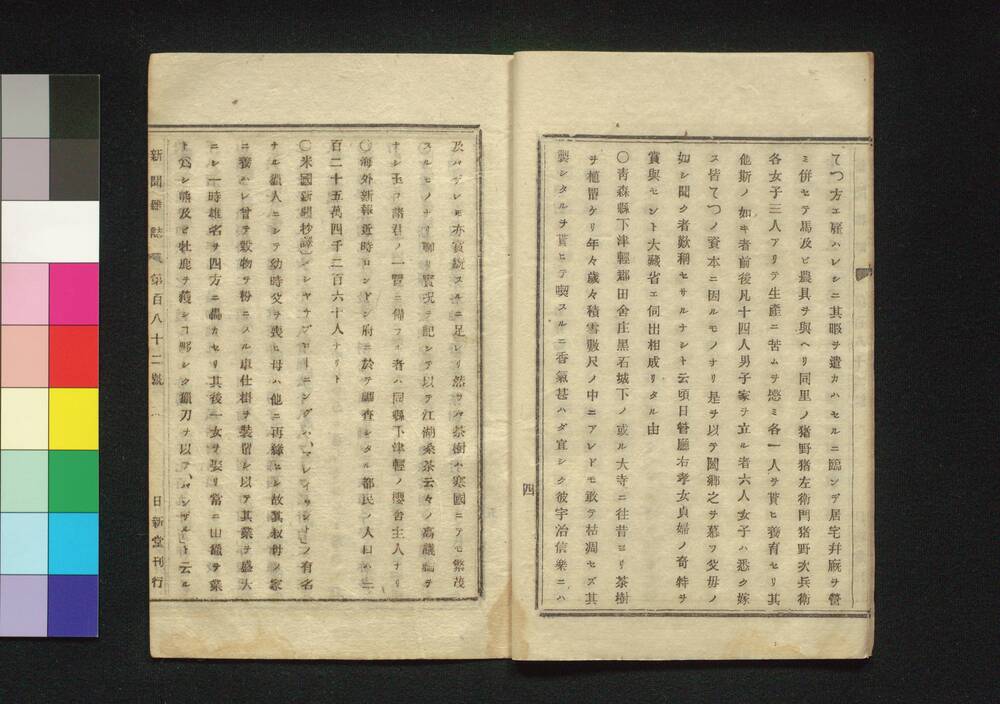 てつ方エ雇ハレシニ其暇ヲ遣カハセルニ臨ンデ居宅幷厩ヲ營
ミ併セテ馬及ビ農具ヲ與ヘリ同里ノ猪野猪左衛門猪野次兵衛
各女子三人アリテ生產ニ苦ムヲ愍ミ各一人ヲ貰ヒ養育セリ其
他斯ノ如キ者前後凡十四人男子家ヲ立ル者六人女子ハ悉ク嫁
ス皆てつノ資本ニ因ルモノナリ是ヲ以テ闔鄉之ヲ慕フ父毋ノ
如シ聞ク者歎稱セサルナシト云頃日督廳右孝女貞婦ノ奇特ヲ
賞與セント大藏省エ伺出相成リタル由
〇靑森縣下津輕郡田舍庄黑石城下ノ或ル大寺ニ往昔ヨリ茶樹
ヲ植置ケリ年々歲々積雪數尺ノ中ニアレドモ敢テ枯凋セズ其
製シタルヲ貰ヒテ喫スルニ香氣甚ハダ宜シク彼宇治信樂ニハ
四
及ハザレモ亦賞翫スルニ足レリ然ラハ茶樹ハ寒國ニアモ繁茂
スルヒノナリ聊カ實況ヲ記シテ以テ江湖桑茶云々ノ高議論ヲ
ナシ玉フ諸君ノ一覽ニ備フ、者ハ同縣下津輕ノ櫻舍主人ナリ
〇海外新報近時ロンドン府ニ於テ調査シタル都民ノ人口ハ三
百二十五萬四千二百六十人ナリト
〇米國新聞抄譯
ナル獵人ニシテ幼時父ヲ喪ヒ母ハ他ニ再緣セシ故其叔母ノ家
ニ養ハレ曾テ穀物ヲ粉ニスル車仕掛ヲ裝置シ以テ其業ヲ盛大
ニシ一時雄名ヲ四方ニ轟カセリ其後一女ヲ娶リ常ニ山獵ヲ業
ト爲シ熊及ビ牡鹿ヲ獲シ
新聞雜誌 第百八十二號
日新堂刊行